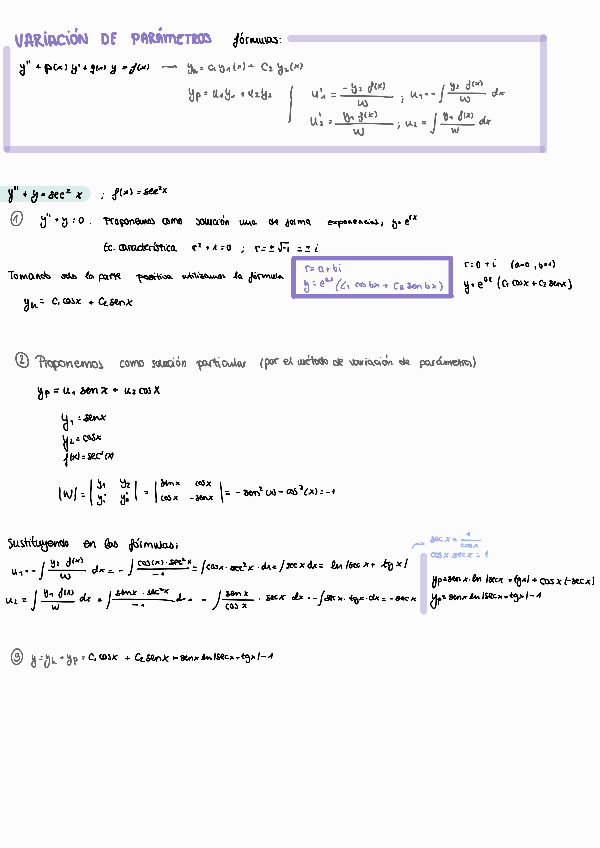 VARIACIÓN DE PARÁMETROS fórmulas:
y'' + p(x) y' + q(x) y = f(x) — yh = c1 y1(x) + c2 y2(x)
yp = u1y1 + u2y2
u1' = -y2 f(x) / W ; u1 = -∫ y2 f(x) / W dx
u2' = y1 f(x) / W ; u2 = ∫ y1 f(x) / W dx
y'' + y = sec² x ; f(x) = sec²x
① y'' + y = 0 . Proponemos como solución una de forma exponencial, y = e^rx
Ec. característica r² + 1 = 0 ; r = ± √-1 = ± i
Tomando solo la parte positiva utilizamos la fórmula
r = a + bi
y = e^ax (C1 cos bx + C2 sen bx)
r = 0 + i (a=0, b=1)
y = e^0x (C1 cosx + C2 senx)
yh = C1 cosx + C2 senx
② Proponemos como solución particular (por el método de variación de parámetros)
yp = u1 sen x + u2 cos x
y1 = senx
y2 = cosx
f(x) = sec²(x)
|W| = | y1 y2 ; y1' y2' | = | senx cosx ; cosx -senx | = - sen²(x) - cos²(x) = -1
Sustituyendo en las fórmulas:
sec x = 1 / cosx
cosx secx = 1
u1 = -∫ y2 f(x) / W dx = -∫ cos(x) · sec²x / -1 = ∫cosx · sec²x · dx = ∫sec x dx = ln |sec x + tg x|
u2 = ∫ y1 f(x) / W dx = ∫ senx · sec²x / -1 dx = - ∫ senx / cosx · secx dx = -∫secx · tgx · dx = - secx
yp = senx · ln |secx + tgx| + cosx (-secx)
yp = senx ln |secx + tgx| - 1
③ y = yh + yp = C1 cosx + C2 senx + senx ln |secx + tgx| - 1